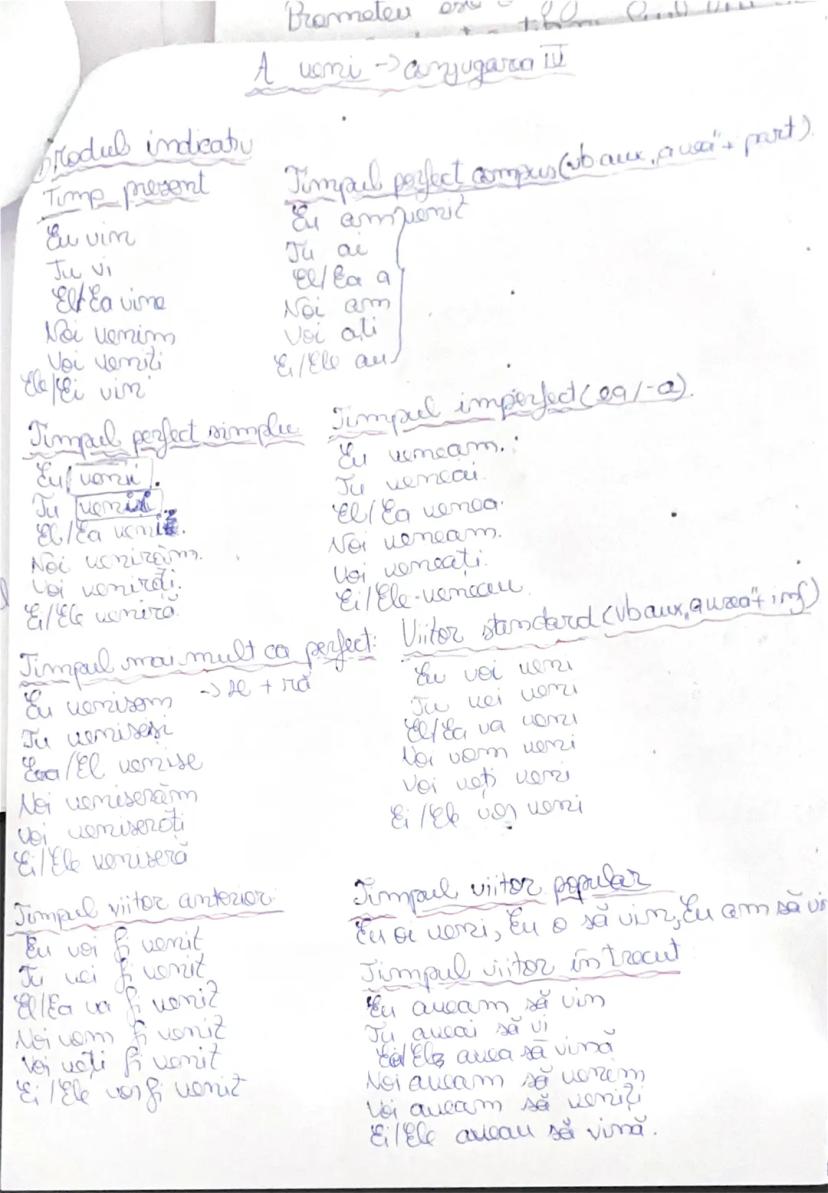 Prometeu
A veni -> conjugarea IV
Modul indicativ
Timp prezent
Eu vin
Tu vi
El/Ea vine
Noi venim
Voi veniti
Ele/Ei vin
Timpul perfect compus (vb aux, avea" + part)
Eu am venit
Tu ai
El/Ea a
Noi am
Voi ati
Ei/Ele au
Timpul perfect simplu
Eu venii.
Tu veniși.
El/Ea veni.
Noi venirăm.
Voi venirăți.
Ei/Ele veniră.
Timpul imperfect (ea/-a).
Eu veneam.
Tu veneai.
El/Ea venea.
Noi veneam.
Voi veneați.
Ei/Ele veneau.
Timpul mai mult ca perfect:
Eu venisem -> se + ră
Tu veniseși
Ea/El venise
Noi veniserăm
Voi veniserăți
Ei/Ele veniseră
Viitor standard (vb aux, a vrea" + inf)
Eu voi veni
Tu vei veni
El/Ea va veni
Noi vom veni
Voi veți veni
Ei/Ele vor veni
Timpul viitor anterior:
Eu voi fi venit
Tu vei fi venit
El/Ea va fi venit
Noi vom fi venit
Voi veți fi venit
Ei/Ele vor fi venit
Timpul viitor popular
Eu oi veni, Eu o să vin, Eu am să vi
Timpul viitor în trecut
Eu aveam să vin
Tu aveai să vi
Ea/El avea să vină
Noi aveam să venim
Voi aveam să veniți
Ei/Ele aveau să vină.